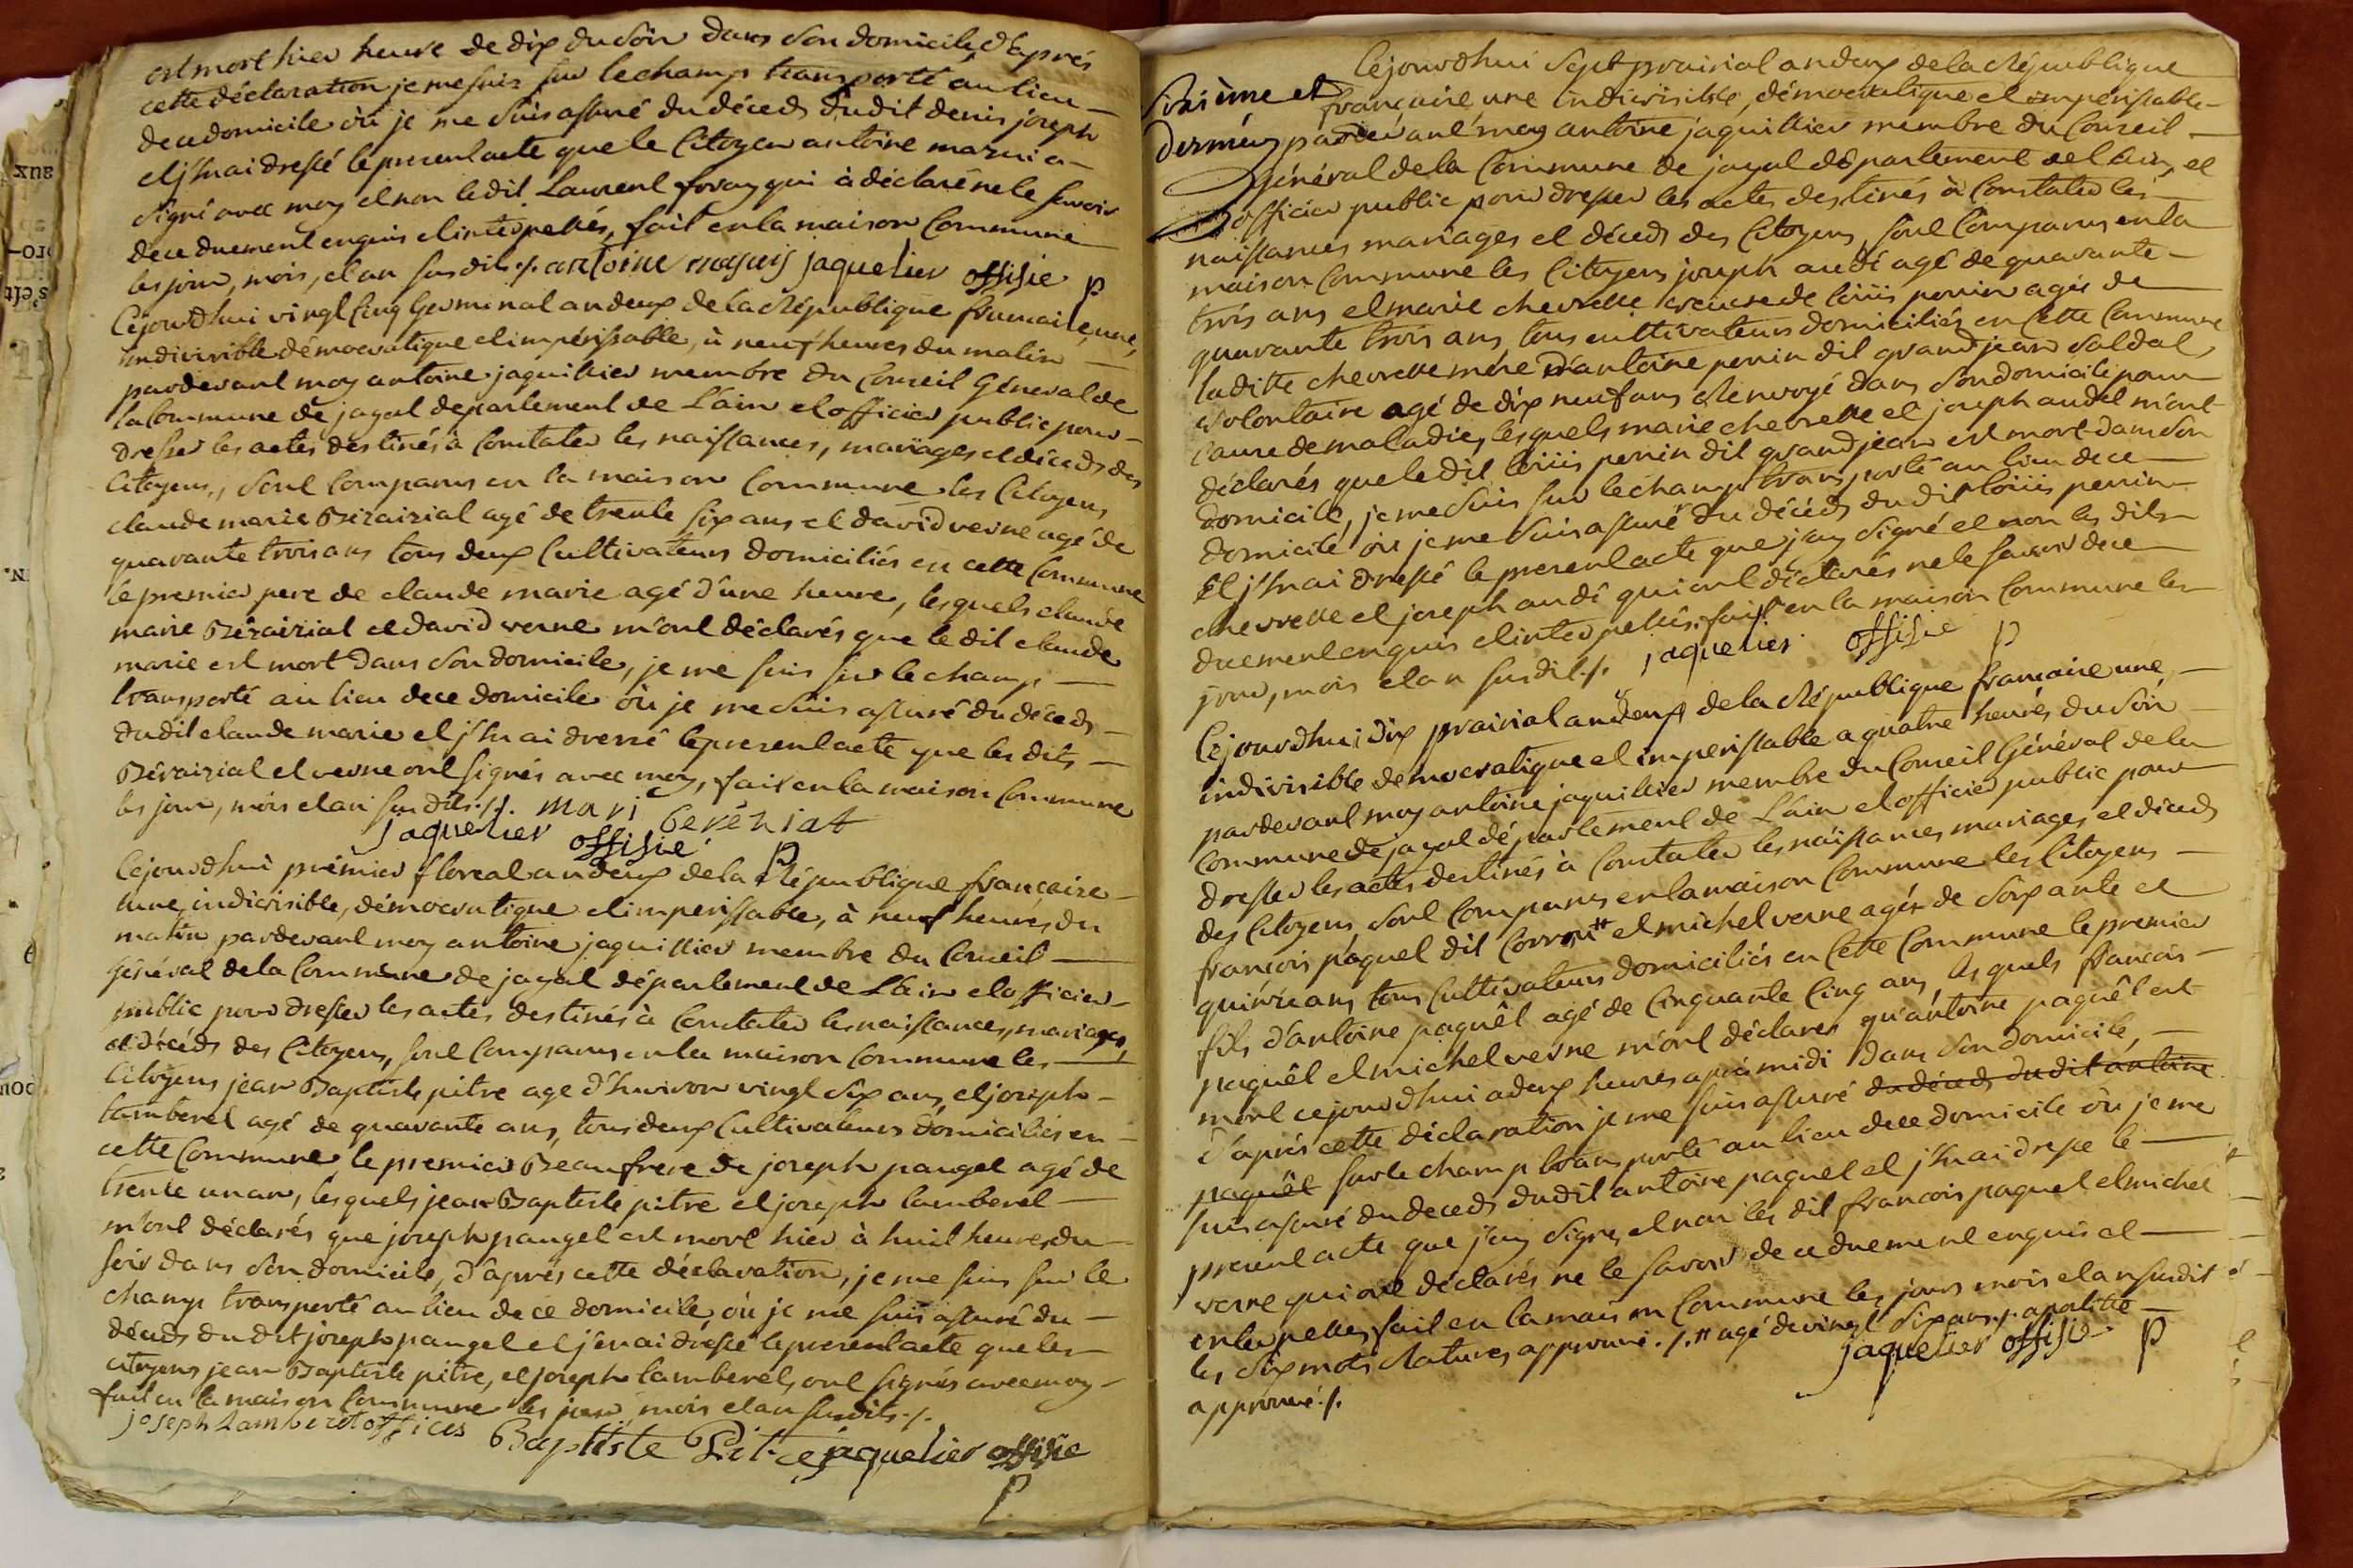 est mort hier heure de dix du Soir dans Son domicile, d'après
cette déclaration je me suis sur le champ transporté au lieu
de ce domicile où je me Suis assuré du décéds dudit denis joseph
et j'en ai dressé le present acte que le Citoyen antoine
Signé avec moy et non ledit Laurent qui à déclaré ne le Savoir
de ce duement enquis et interpellés, fait en la maison Commune
les jour, mois, et an susdits ./. antoine jaquelier offisie p
Cejourdhui vingt cinq Germinal an deux de la République francaise, une,
indivisible démocratique et impérissable, à neuf heures du matin
pardevant moy antoine jaquillier membre du Conseil Géneral de
la Commune de jayat departement de L'ain et officier public pour
dresser les actes destinés à Constater les naissances, mariages et décéds des
Citoyens, Sont Comparus en la maison Commune les Citoyens
claude marie Béraizial agé de trente Six ans et david verne agé de
quarante trois ans tous deux Cultivateurs domiciliés en cette Commune
le premier pere de claude marie agé d'une heure, lesquels claude
marie Béraizial et david verne m'ont déclarés que le dit claude
marie est mort dans Son domicile, je me suis sur le champ
transporté au lieu de ce domicile où je me Suis assuré du décéds
dudit claude marie et j'en ai dressé le present acte que les dits
Béraizial et verne ont Signés avec moy, fait en la maison Commune
les jour, mois et an susdits ./. mari beréhiat
jaquelier offisie p
Cejourdhui prémier floreal an deux de la République francaise
une, indivisible, démocratique et imperissable, à neuf heures du
matin pardevant moy antoine jaquillier membre du Conseil
Général de la Commune de jayat département de L'ain et officier
public pour dresser les actes destinés à Constater les naissances, mariages,
et décéds des Citoyens, sont Comparus en la maison Commune les
Citoyens jean Baptiste pitre agé d'huiron vingt Six ans, et joseph
lamberet agé de quarante ans, tous deux Cultivateurs domiciliés en
cette Commune, le premier Beaufrere de joseph paugel agé de
trente un ans, les quels jean Baptiste pitre et joseph lamberet
m'ont déclarés que joseph paugel est mort hier à huit heures du
soir dans Son domicile, d'après cette déclaration, je me suis sur le
champ transporté au lieu de ce domicile, où je me suis assuré du
décéds du dit joseph paugel et j'en ai dressé le present acte que les
citoyens jean Baptiste pitre, et joseph lamberet, ont signés avec moy
fait en la maison Commune les jour, mois et an susdits ./.
joseph Lamberet offices Baptiste Pitre jaquelier offisie
p
Cejourdhui Sept prairial an deux de la République
Sixième et
francaise, une indivisible, démocratique et imperissable
Dernier
pardevant moy antoine jaquillier membre du Conseil
Général de la Commune de jayat département de L'ain, et
officier public pour dresser les actes destinés à Constater les
naissances mariages et décéds des Citoyens, sont Comparus en la
maison Commune les Citoyens joseph audé agé de quarante
trois ans et marie chevrelle veuve de loüis perrin agés de
quarante trois ans, tous cultivateurs domiciliés en Cette Commune
ladite chevrelle mére d'antoine perrin dit grand jean Soldat
volontaire agé de dix neuf ans Renvoyé dans Son domicile pour
Cause de maladie, lesquels marie chevrelle et joseph audet m'ont
déclarés que le dit loüis perrin dit grand jean est mort dans Son
domicile, je me Suis sur le champ transporté au lieu de ce
domicile où je me Suis assuré du décéds du dit loüis perrin
Et j'en ai dressé le present acte que j'ay Signé et non les dits
chevrelle et joseph audé qui ont déclarés ne le Savoir de ce
duement enquis et interpellés. fait en la maison Commune les
jour, mois et an susdit ./. jaquelier offisie p
Cejourdhui dix prairial an deux de la République francaise une,
indivisible démocratique et imperissable a quatre heures du Soir
pardevant moy antoine jaquillier membre du Conseil Général de la
Commune de jayat département de L'ain et officier public pour
dresser les actes destinés à Constater les naissances mariages et décéds
des Citoyens, Sont Comparus en la maison Commune les Citoyens
francois páquet dit Corron # et michel verne agés de Soixante et
quinze ans, tous Cultivateurs domiciliés en Cette Commune le premier
fils d'antoine paquêt agé de Cinquante Cinq ans, les quels francois
paquêt et michel verne m'ont déclarés qu'antoine paquêt est
mort cejourd'hui a deux heures après midi dans Son domicile,
d'après cette déclaration je me suis assuré du décéds du dit antoine
paquêt sur le champ transporté au lieu de ce domicile où je me
suis assuré du deceds dudit antoine paquet et j'en ai dressé le
present acte que j'ay Signé, et non les dit francois paquet et michel
verne qui ont déclarés ne le Savoir de ce duement enquis et
interpellés, fait en la maison Commune les jours mois et an susdit
les Six mots Raturés approuvé ./. # agé de vingt Six ans ./. apostille
approuvé ./. jaquelier offisie p